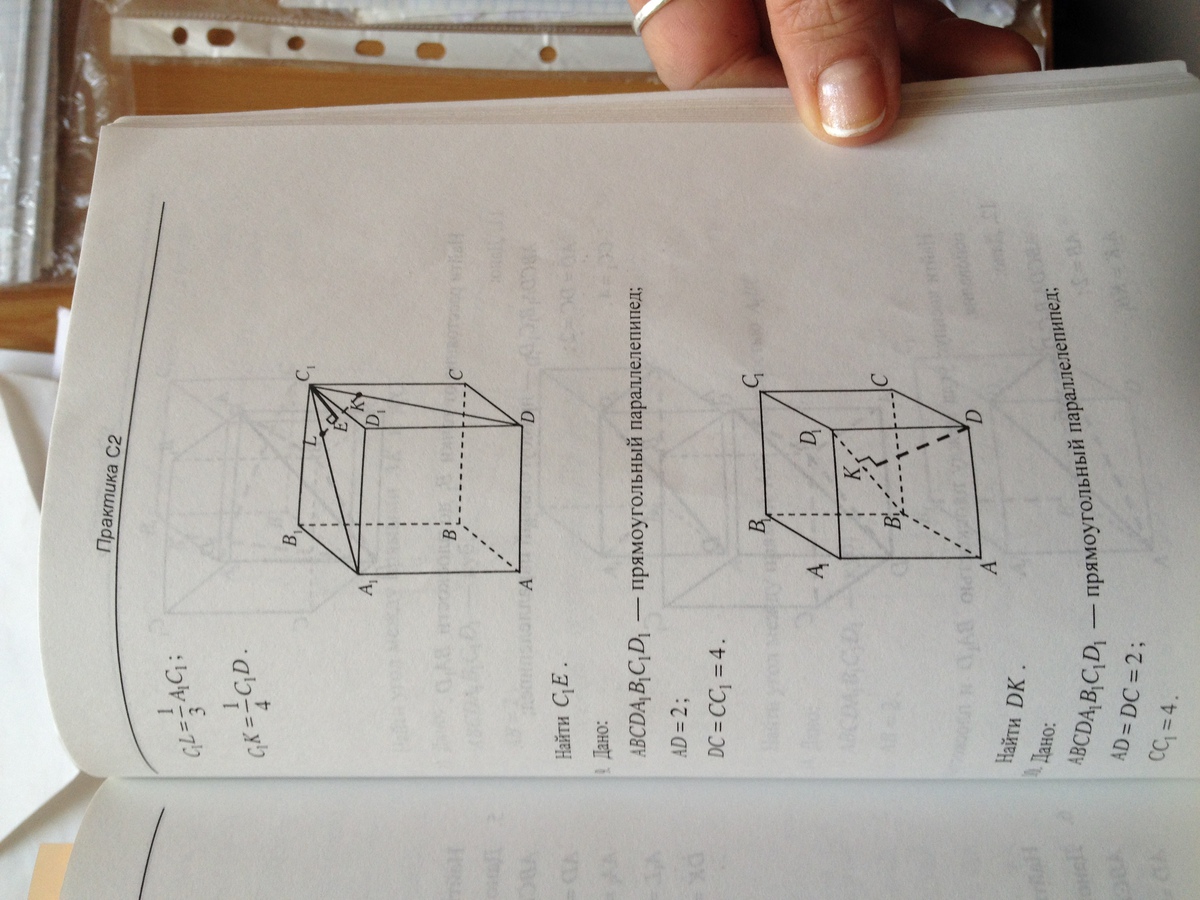 Практика С2
C₁L = 1/3 A₁C₁;
C₁K = 1/4 C₁D.
B₁
C₁
L
E
K
A₁
D₁
B
C
A
D
Найти C₁E.
Дано:
ABCDA₁B₁C₁D₁ — прямоугольный параллелепипед;
AD = 2;
DC = CC₁ = 4.
B₁
C₁
A₁
D₁
K
B
C
A
D
Найти DK.
10. Дано:
ABCDA₁B₁C₁D₁ — прямоугольный параллелепипед;
AD = DC = 2;
CC₁ = 4.